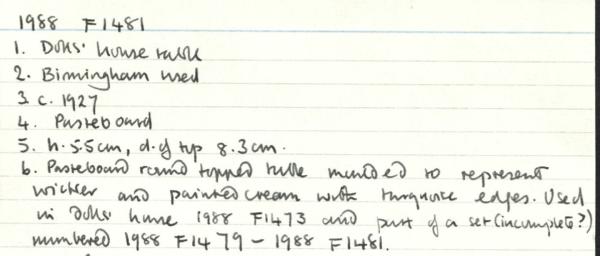 1988 F1481
1. Dolls' house table
2. Birmingham used
3. c. 1927
4. Pasteboard
5. h. 5.5cm, d. of top 8.3cm.
6. Pasteboard round topped table moulded to represent
wicker and painted cream with turquoise edges. Used
in Dolls' house 1988 F1473 and part of a set (incomplete?)
numbered 1988 F1479 - 1988 F1481.